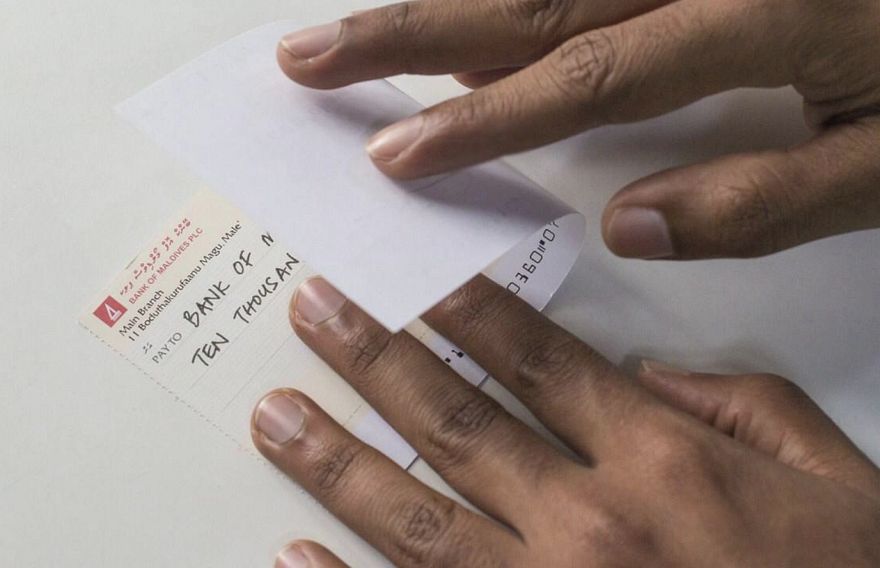 BANK OF MALDIVES PLC
Main Branch
11 Boduthakurufaanu Magu, Male'
PAY TO BANK OF
TEN THOUSAN
0360⑈0